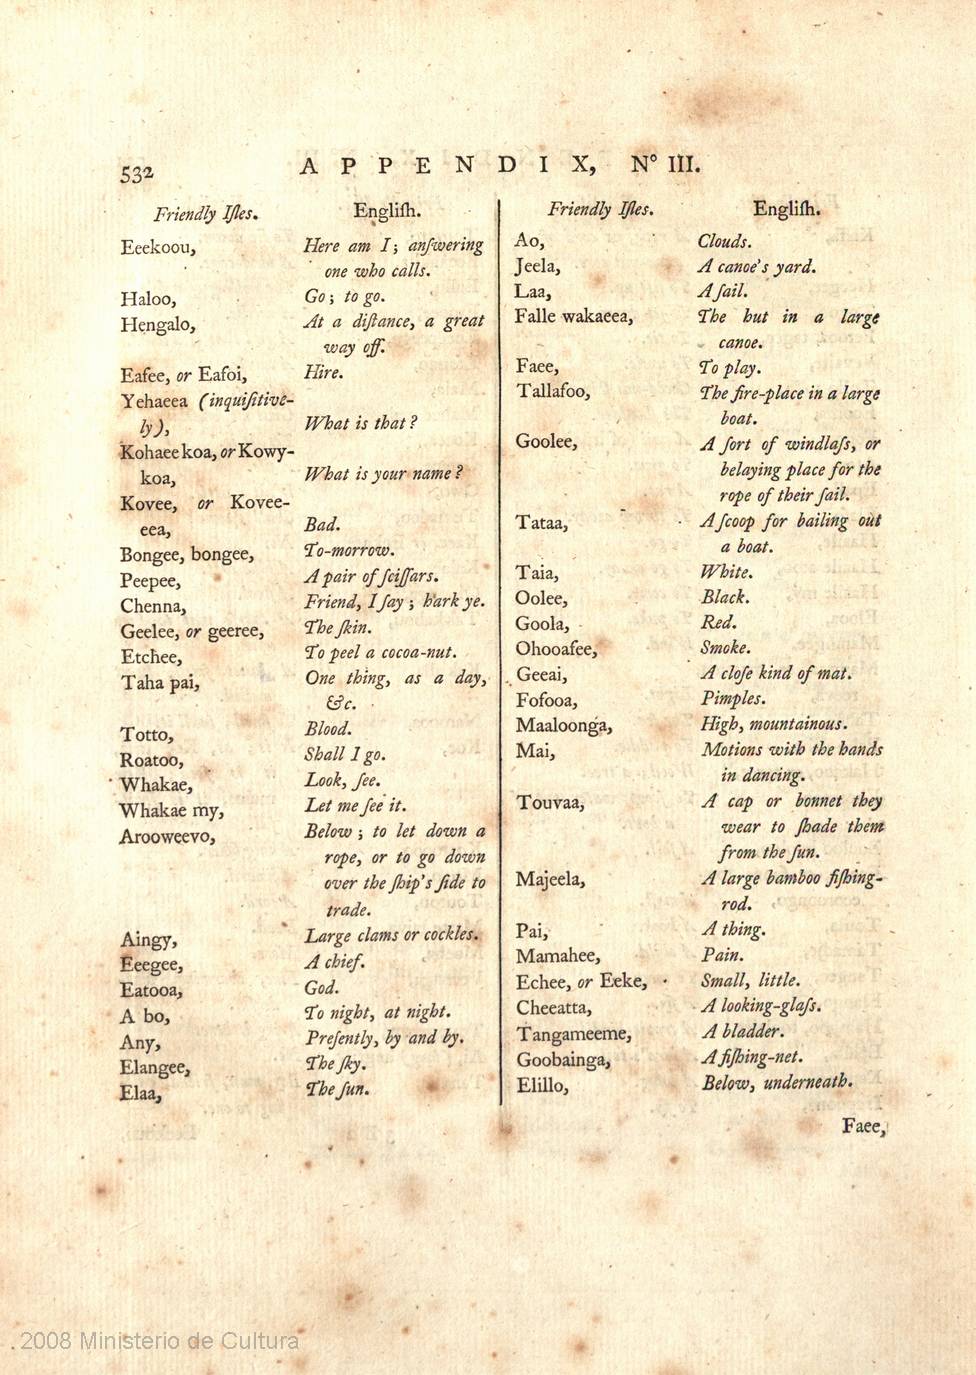 532
APPENDIX, N° III.
Friendly Iſles. Engliſh.
Eeekoou, Here am I; anſwering
one who calls.
Haloo, Go; to go.
Hengalo, At a diſtance, a great
way off.
Eafee, or Eafoi, Hire.
Yehaeea (inquiſitive-
ly), What is that?
Kohaee koa, or Kowy-
koa, What is your name?
Kovee, or Kovee-
eea, Bad.
Bongee, bongee, To-morrow.
Peepee, A pair of ſciſſars.
Chenna, Friend, I ſay; hark ye.
Geelee, or geeree, The ſkin.
Etchee, To peel a cocoa-nut.
Taha pai, One thing, as a day,
&c.
Totto, Blood.
Roatoo, Shall I go.
Whakae, Look, ſee.
Whakae my, Let me ſee it.
Arooweevo, Below; to let down a
rope, or to go down
over the ſhip's ſide to
trade.
Aingy, Large clams or cockles.
Eeegee, A chief.
Eatooa, God.
A bo, To night, at night.
Any, Preſently, by and by.
Elangee, The ſky.
Elaa, The ſun.
Friendly Iſles. Engliſh.
Ao, Clouds.
Jeela, A canoe's yard.
Laa, A ſail.
Falle wakaeea, The hut in a large
canoe.
Faee, To play.
Tallafoo, The fire-place in a large
boat.
Goolee, A ſort of windlaſs, or
belaying place for the
rope of their ſail.
Tataa, A ſcoop for bailing out
a boat.
Taia, White.
Oolee, Black.
Goola, Red.
Ohooafee, Smoke.
Geeai, A cloſe kind of mat.
Fofooa, Pimples.
Maaloonga, High, mountainous.
Mai, Motions with the hands
in dancing.
Touvaa, A cap or bonnet they
wear to ſhade them
from the ſun.
Majeela, A large bamboo fiſhing-
rod.
Pai, A thing.
Mamahee, Pain.
Echee, or Eeke, Small, little.
Cheeatta, A looking-glaſs.
Tangameeme, A bladder.
Goobainga, A fiſhing-net.
Elillo, Below, underneath.
Faee,
2008 Ministerio de Cultura